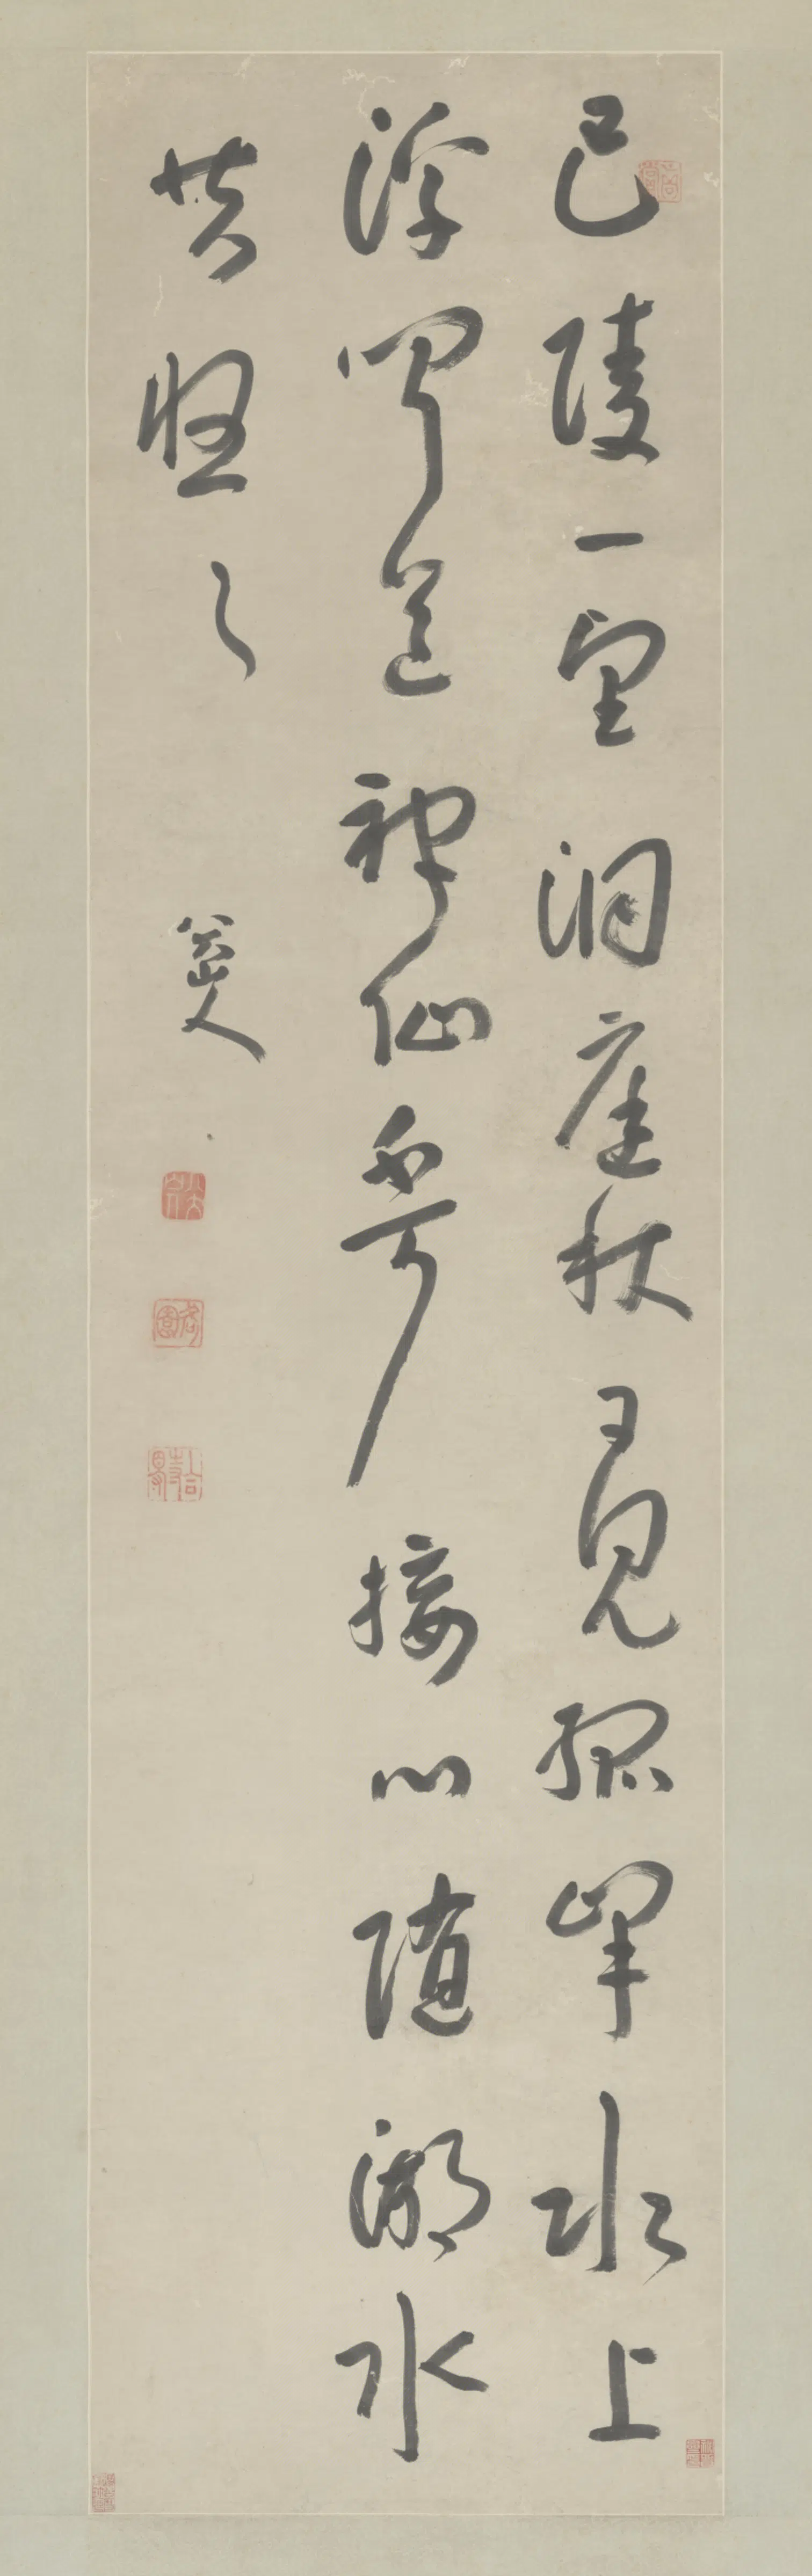 巴陵一望洞庭秋日見孤峰水上
浮聞道神仙不可接心隨湖水
共悠〻
八大山人
八大山人
何園